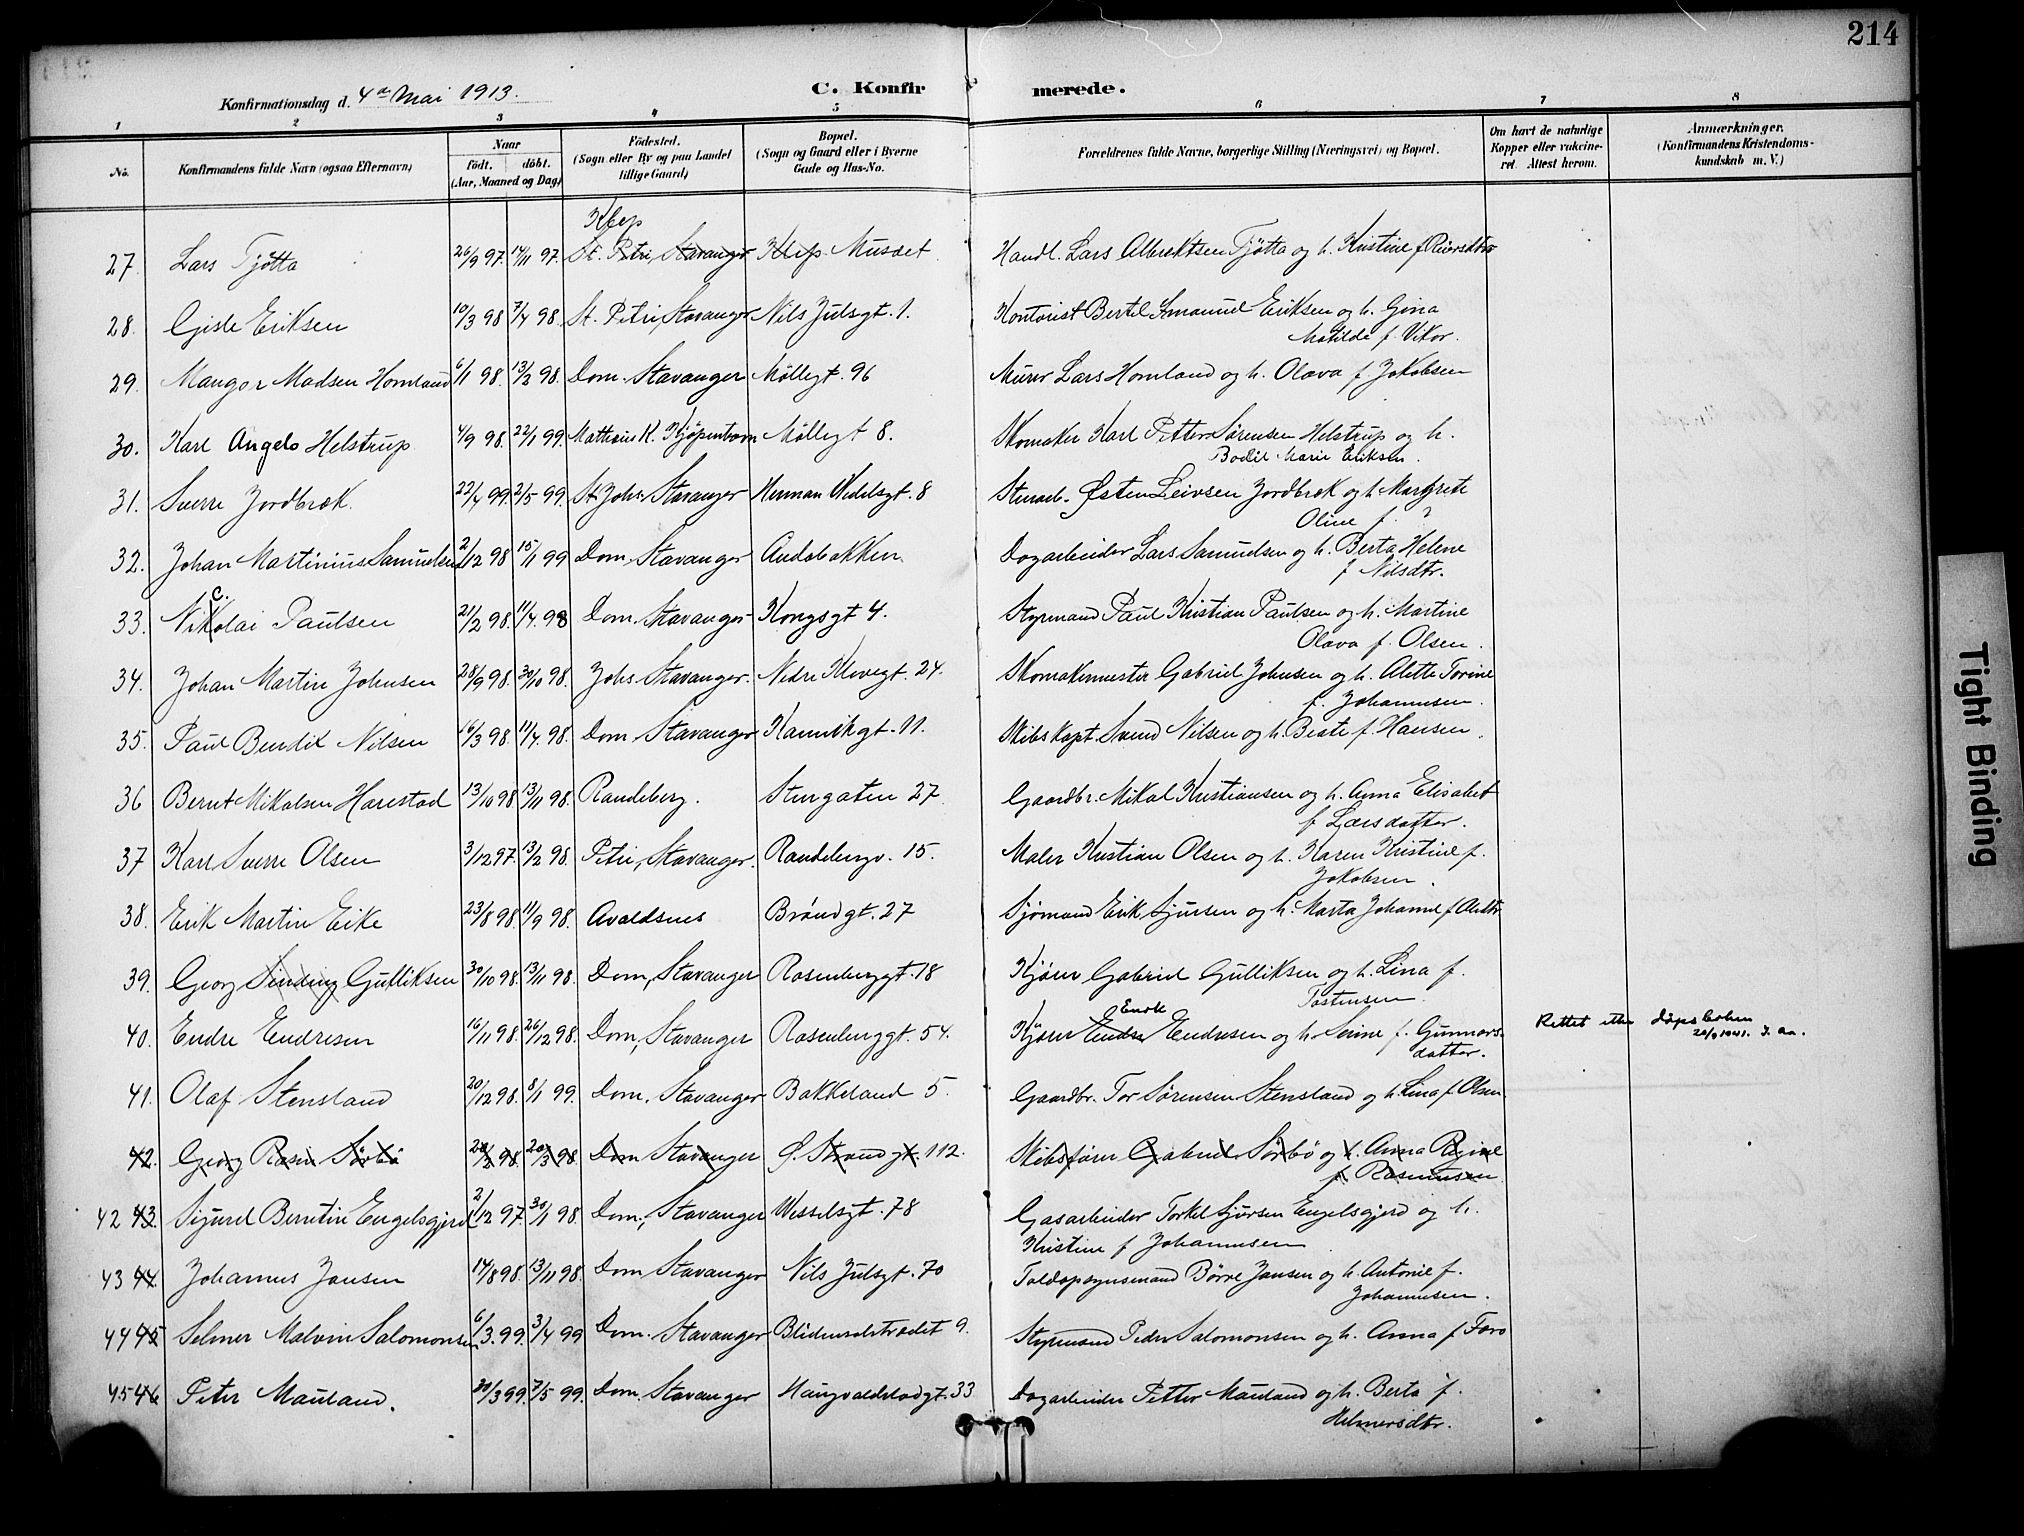 214
Konfirmationsdag d. 4de Mai 1913.
C. Konfirmerede.
1 2 3 4 5 6 7 8
No.
Konfirmandens fulde Navn (ogsaa Efternavn)
Naar
født. døbt.
(Aar, Maaned og Dag)
Födested.
(Sogn eller By og paa Landet
tillige Gaard)
Bopæl.
(Sogn og Gaard eller i Byerne
Gade og Hus-No.
Forældrenes fulde Navne, borgerlige Stilling (Næringsvei) og Bopæl.
Om havt de naturlige
Kopper eller vakcine-
ret. Attest herom.
Anmærkninger.
(Konfirmandens Kristendoms-
kundskab m. V.)
Klep
27. Lars Tjøtta 26/9 97. 14/11 97. St. Petri, Stavanger Klep Muséet Handl. Lars Albrektsen Tjøtta og h. Kristine f
28. Gisle Eriksen 10/3 98 7/4 98. St. Petri, Stavanger Nils Julsgt. 1. Kontorist Bertel Emanuel Eriksen og h. Gina
Matilde f. Vikør.
29. Mangor Madsen Homland 6/1 98. 13/2 98. Dom. Stavanger Møllegt. 96 Murer Lars Homland og h. Olava f Jakobsen
30. Karl Angelo Helstrup 4/9 98. 22/1 99. Matthæus K. Kjøpenhavn Møllegt 8. Skomaker Karl Petter Sørensen Helstrup og h.
Bodil Marie Eriksen.
31. Sverre Jordbræk. 22/4 99. 2/5 99. St. Johs. Stavanger Herman Wedelsgt. 8 Stenarb. Østen Leivsen Jordbræk og h. Margrete
Oline f. ?
32. Johan Martinius Samuelsen 2/12 98 15/1 99 Dom, Stavanger Andabakken Dagarbeider Lars Samuelsen og h. Berta Helene
f Nilsdtr.
C.
33. Nikolai Paulsen 21/2 98. 11/4. 98 Dom. Stavanger Kongsgt 4. Styrmand Paul Kristian Paulsen og h. Martine
Olava f. Olsen.
34. Johan Martin Johnsen 28/9 98. 30/10 98. Johs Stavanger. Nedre Kleivegt. 24. Skomakermester Gabriel Johnsen og h. Alette Torine
f. Johannesen.
35. Paul Bendik Nilsen 16/3 98. 11/4. 98. Dom, Stavanger Kannikgt. 11. Skibskapt. Svend Nilsen og h. Beate f. Hansen.
36 Bernt Mikalsen Harestad 13/10 98 13/11 98. Randeberg. Stengaten 27 Gaardbr. Mikal Kristiansen og h. Anna Elisabet
f Larsdatter.
37 Karl Sverre Olsen 3/12 97. 13/2 98. Petri, Stavanger. Randebergv. 15. Maler Kristian Olsen og h. Karen Kristine f.
Jakobsen.
38. Erik Martin Eike 23/8 98. 11/9 98. Avaldsnes Brøndgt. 27 Sjømand Erik Sjursen og h. Marta Johanne f
39. Georg Sinding Gulliksen 30/10 98. 13/11 98. Dom, Stavanger Rosenberggt. 18 Kjører Gabriel Gulliksen og h. Lina f.
Tostensen.
Enok
40. Endre Endresen 16/11 98. 26/12 98. Dom, Stavanger Rosenberggt. 54. Kjører Endre Endresen og h. Serine f. Gunnars-
datter. Rettet etter dåpsboken
20/9 1941.
41. Olaf Stensland 20/12 98. 8/1 99. Dom. Stavanger Bakkeland 5. Gaardbr. Tor Sørensen Stensland og h. Lina f. Olsen
42. Georg Rasin Sørbø 20/2 98. 20/3 98. Dom Stavanger Ø. Strandgt. 112. Skibsfører Gabriel Sørbø og h. Anna Regine
f. Rasmussen
42 43. Sigurd Berntin Engelsgjerd 2/12 97 30/1 98. Dom, Stavanger Wesselsgt. 78 Gasarbeider Torkel Sjursen Engelsgjerd og h.
Kristine f Johannesen
43 44. Johannes Jansen 14/8 98. 13/11 98. Dom Stavanger Nils Julsgt. 70 Toldopsynsmand Børre Jansen og h. Antonie f.
Johannesen.
44 45 Selmer Malvin Salomonsen 6/3. 99. 3/4 99 Dom. Stavanger Blidensolstrædet 9. Styrmand Peder Salomonsen og h. Anna f
45 46 Peter Mauland. 20/3 99. 7/5 99. Dom, Stavanger Haugvaldstadgt. 33 Dagarbeider Petter Mauland og h. Berta f.
Helmersdtr.
Tight Binding